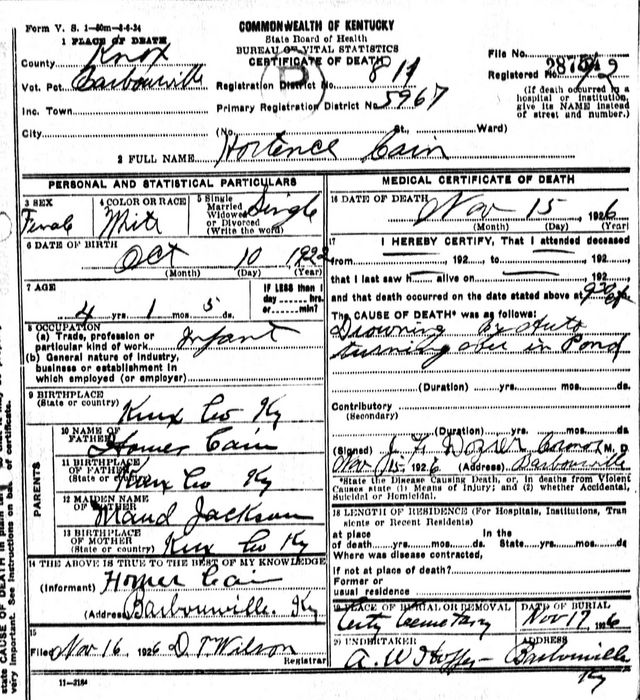 Form V. S. 1-50m-8-6-24
COMMONWEALTH OF KENTUCKY
State Board of Health
BUREAU OF VITAL STATISTICS
CERTIFICATE OF DEATH
1 PLACE OF DEATH
County Knox
Vot. Pct. Barbourville
Inc. Town
City
File No.
Registered No.
(If death occurred in a
hospital or institution,
give its NAME instead
of street and number.)
Registration District No. 811
Primary Registration District No. 5967
(No. St., Ward)
2 FULL NAME Hortence Cain
PERSONAL AND STATISTICAL PARTICULARS
3 SEX
Female
4 COLOR OR RACE
White
5 Single
Married
Widowed
or Divorced
(Write the word)
Single
6 DATE OF BIRTH
Oct 10 1922
(Month) (Day) (Year)
7 AGE
4 yrs. 1 mos. 5 ds.
IF LESS than 1
day hrs.
or min?
8 OCCUPATION
(a) Trade, profession or
particular kind of work Infant
(b) General nature of industry,
business or establishment in
which employed (or employer)
9 BIRTHPLACE
(State or country)
Knx Co Ky
PARENTS
10 NAME OF
FATHER
Homer Cain
11 BIRTHPLACE
OF FATHER
(State or country)
Knx Co Ky
12 MAIDEN NAME
OF MOTHER
Maud Jackson
13 BIRTHPLACE
OF MOTHER
(State or country)
Knx Co Ky
14 THE ABOVE IS TRUE TO THE BEST OF MY KNOWLEDGE
(Informant) Homer Cain
(Address) Barbourville. Ky
15
Filed Nov 16, 1926 D T Wilson
Registrar
11-3184
MEDICAL CERTIFICATE OF DEATH
16 DATE OF DEATH
Nov 15, 1926
(Month) (Day) (Year)
17 I HEREBY CERTIFY, That I attended deceased
from , 192 to , 192
that I last saw h alive on , 192
and that death occurred on the date stated above at
The CAUSE OF DEATH* was as follows:
Drowning by Auto
turning over in Pond
(Duration) yrs. mos. ds.
Contributory
(Secondary)
(Duration) yrs. mos. ds.
(Signed) J. F. Dozier M. D.
Nov 15, 1926 (Address) Barbourville
*State the Disease Causing Death, or, in deaths from Violent
Causes state (1) Means of Injury; and (2) whether Accidental,
Suicidal or Homicidal.
18 LENGTH OF RESIDENCE (For Hospitals, Institutions, Tran
sients or Recent Residents)
at place In the
of death yrs. mos. ds. State yrs. mos. ds.
Where was disease contracted,
if not at place of death?
Former or
usual residence
19 PLACE OF BURIAL OR REMOVAL
City Cemetary
DATE OF BURIAL
Nov 17, 1926
20 UNDERTAKER
A. W.
ADDRESS
Barbourville
Ky
state CAUSE OF DEATH in plain
very important. See instructions on back of certificate.